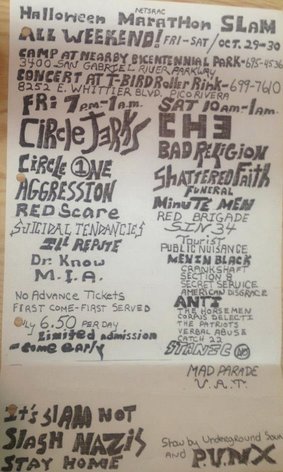 NETSRAC
Halloween MARATHON SLAM
ALL WEEKEND! FRI-SAT/OCT. 29-30
CAMP AT NEARBY BICENTENNIAL PARK - 695-4536
3400 SAN GABRIEL RIVER PARKWAY
CONCERT AT T-BIRD Roller Rink - 699-7610
8252 E. WHITTIER BLVD. PICO RIVERA
FRI 7am-1a.m.
CiRCLe JERKS
CiRCLe ①NE
AGGRESSION
RED Scare
SUICIDAL TENDANCIES
Ill REPUTE
Dr. Know
M.I.A.
NO ADVANCE TICKETS
FIRST COME-FIRST SERVED
ONLY 6.50 PER DAY
Limited admission
-come early
SAT 10am-1am.
CH3
BAD RELIGION
SHATTERED FAITH
FUNERAL
MINUTE MEN
RED BRIGADE
SIN 34
TOURIST
PUBLIC NUISANCE
MEN IN BLACK
CRANKSHAFT
SECTION 8
SECRET SERVICE
AMERICAN DISGRACE
ANTI
THE HORSEMEN
CORPUS DELECTI
THE PATRIOTS
VERBAL ABUSE
CATCH 22
MAD PARADE
V.A.T.
It's SLAM NOT
SLASH NAZIS
STAY HOME
Show by Underground
AND PUNX